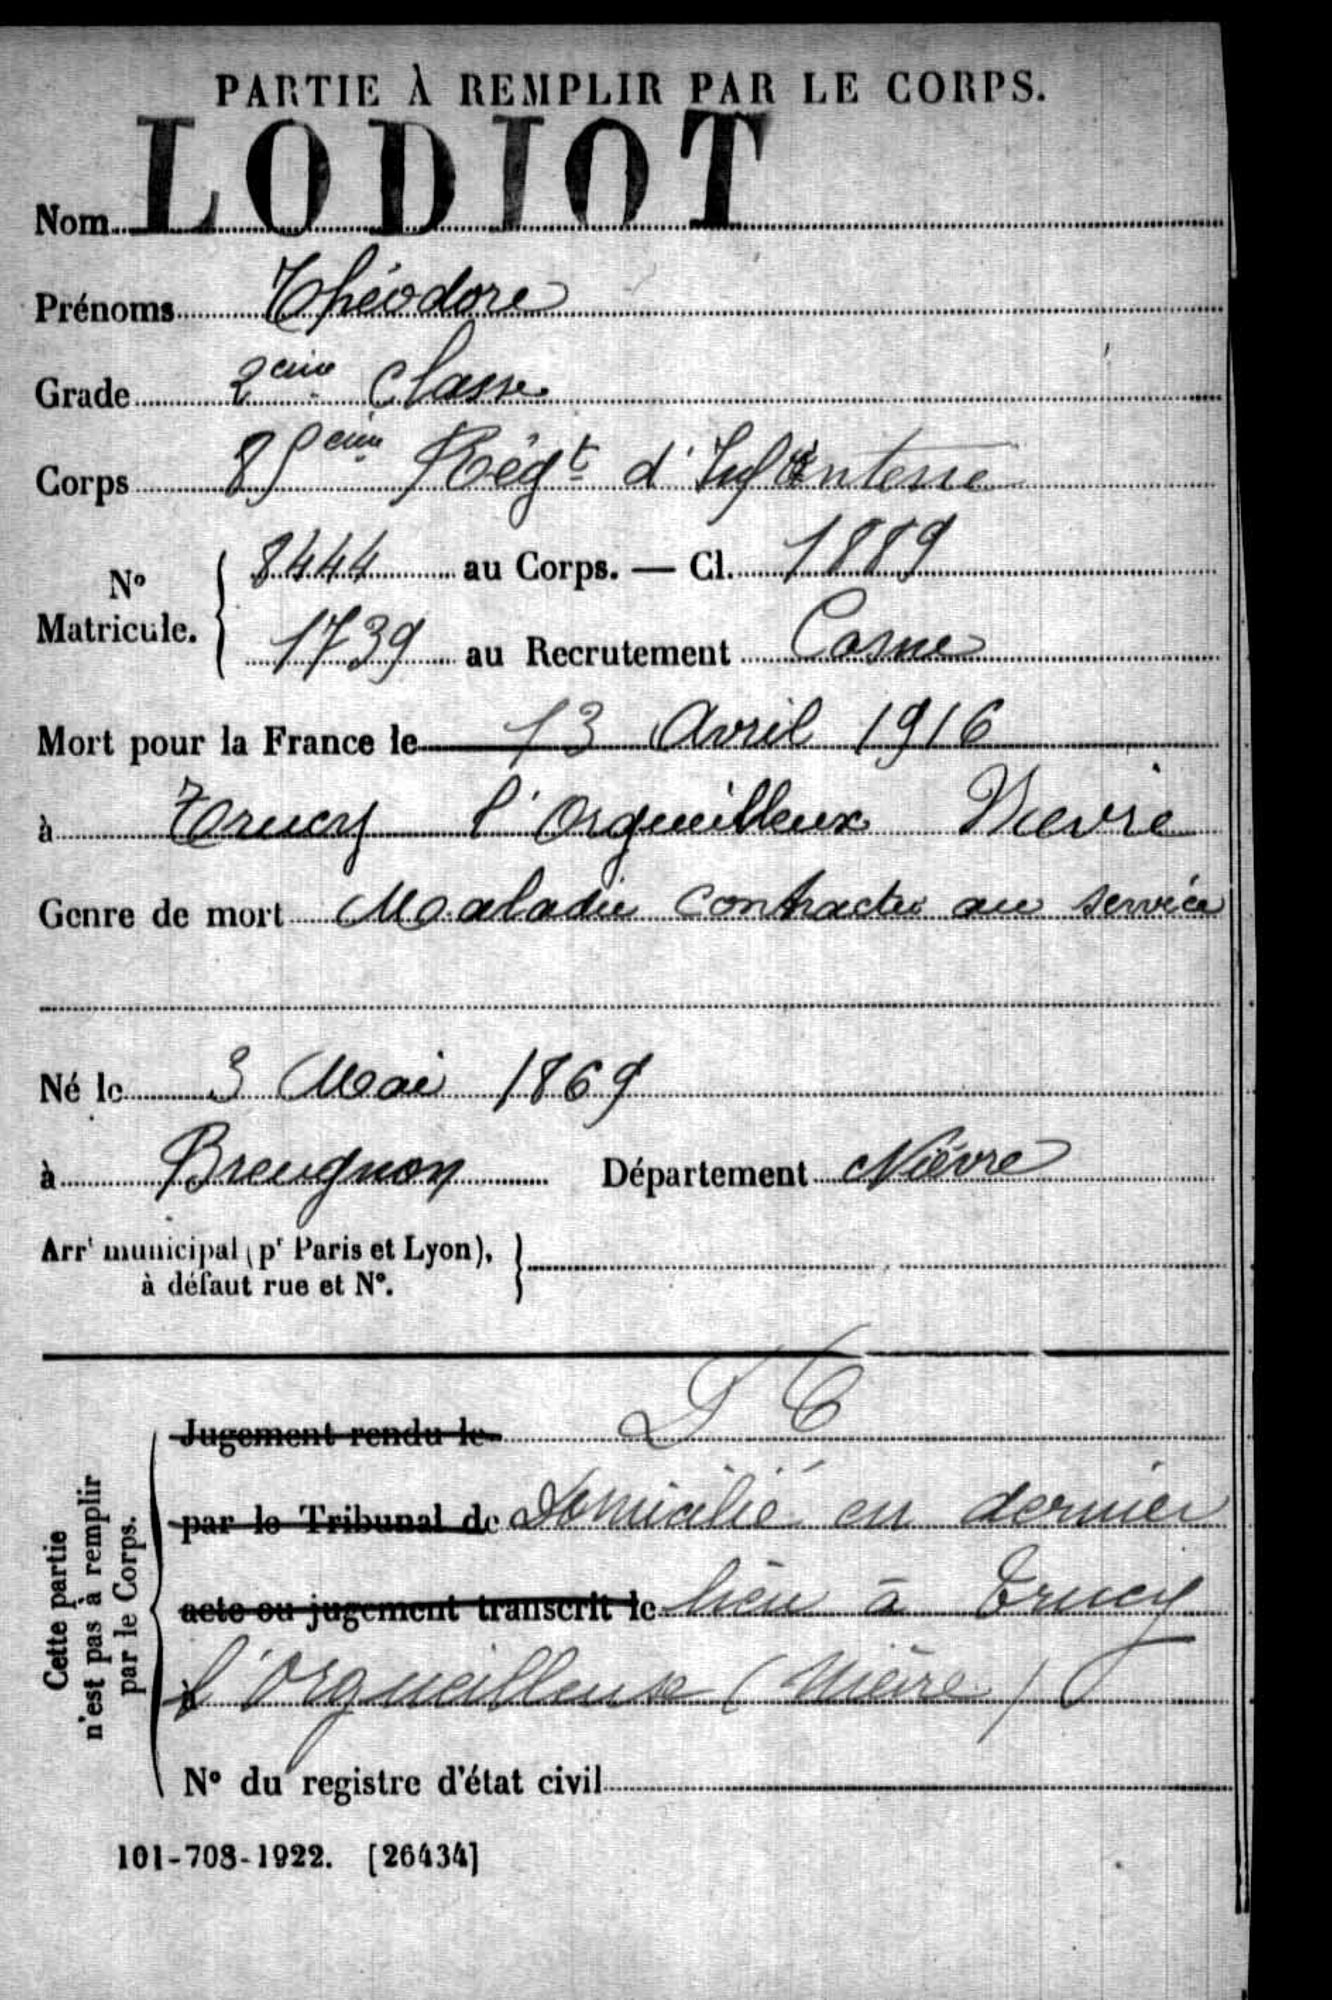 PARTIE À REMPLIR PAR LE CORPS.
Nom LODIOT
Prénoms Théodore
Grade 2eme Classe
Corps 85eme Régt d'Infanterie
N° Matricule. { 8444 au Corps. — Cl. 1889
1739 au Recrutement Cosne
Mort pour la France le 13 Avril 1916
à Trucy l'Orgueilleux Nievre
Genre de mort Maladie contractée au service
Né le 3 Mai 1869
à Breugnon Département Nièvre
Arrt municipal (pr Paris et Lyon), }
à défaut rue et N°.
Cette partie
n'est pas à remplir
par le Corps.
Jugement rendu le D C
par le Tribunal de Domicilié en dernier
acte ou jugement transcrit le lieu à Trucy
à l'Orgueilleuse (Nièvre)
N° du registre d'état civil
101-708-1922. [26434]